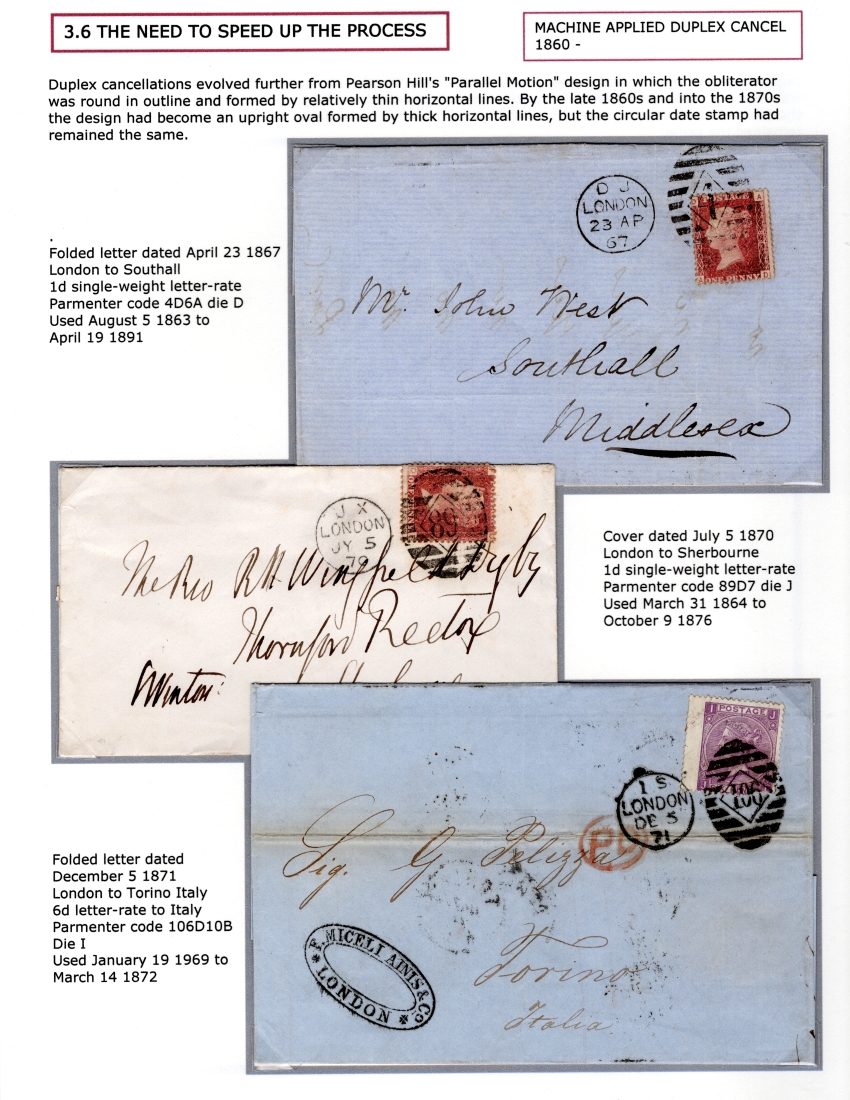 3.6 THE NEED TO SPEED UP THE PROCESS
MACHINE APPLIED DUPLEX CANCEL
1860 -
Duplex cancellations evolved further from Pearson Hill's "Parallel Motion" design in which the obliterator
was round in outline and formed by relatively thin horizontal lines. By the late 1860s and into the 1870s
the design had become an upright oval formed by thick horizontal lines, but the circular date stamp had
remained the same.
.
Folded letter dated April 23 1867
London to Southall
1d single-weight letter-rate
Parmenter code 4D6A die D
Used August 5 1863 to
April 19 1891
D J
LONDON
23 AP
67
ONE PENNY
Mr. John West
Southall
Middlesex
J X
LONDON
JY 5
70
89
The Rev R H Wingfield Digby
Thornford Rector
Cover dated July 5 1870
London to Sherbourne
1d single-weight letter-rate
Parmenter code 89D7 die J
Used March 31 1864 to
October 9 1876
I POSTAGE J
1 S
LONDON
DE 5
71
106
PD
Sig. G Pelizza
Torino
Italia
F. MICELI AINIS & Co
LONDON
Folded letter dated
December 5 1871
London to Torino Italy
6d letter-rate to Italy
Parmenter code 106D10B
Die I
Used January 19 1969 to
March 14 1872